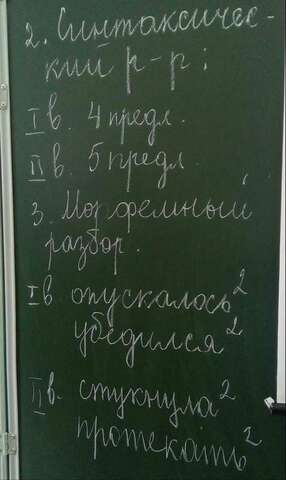 2. Синтаксичес-
кий р-р:
I в. 4 предл.
II в. 5 предл.
3. Морфемный
разбор.
I в. опускалось²
убедился²
II в. стукнула²
протекать²